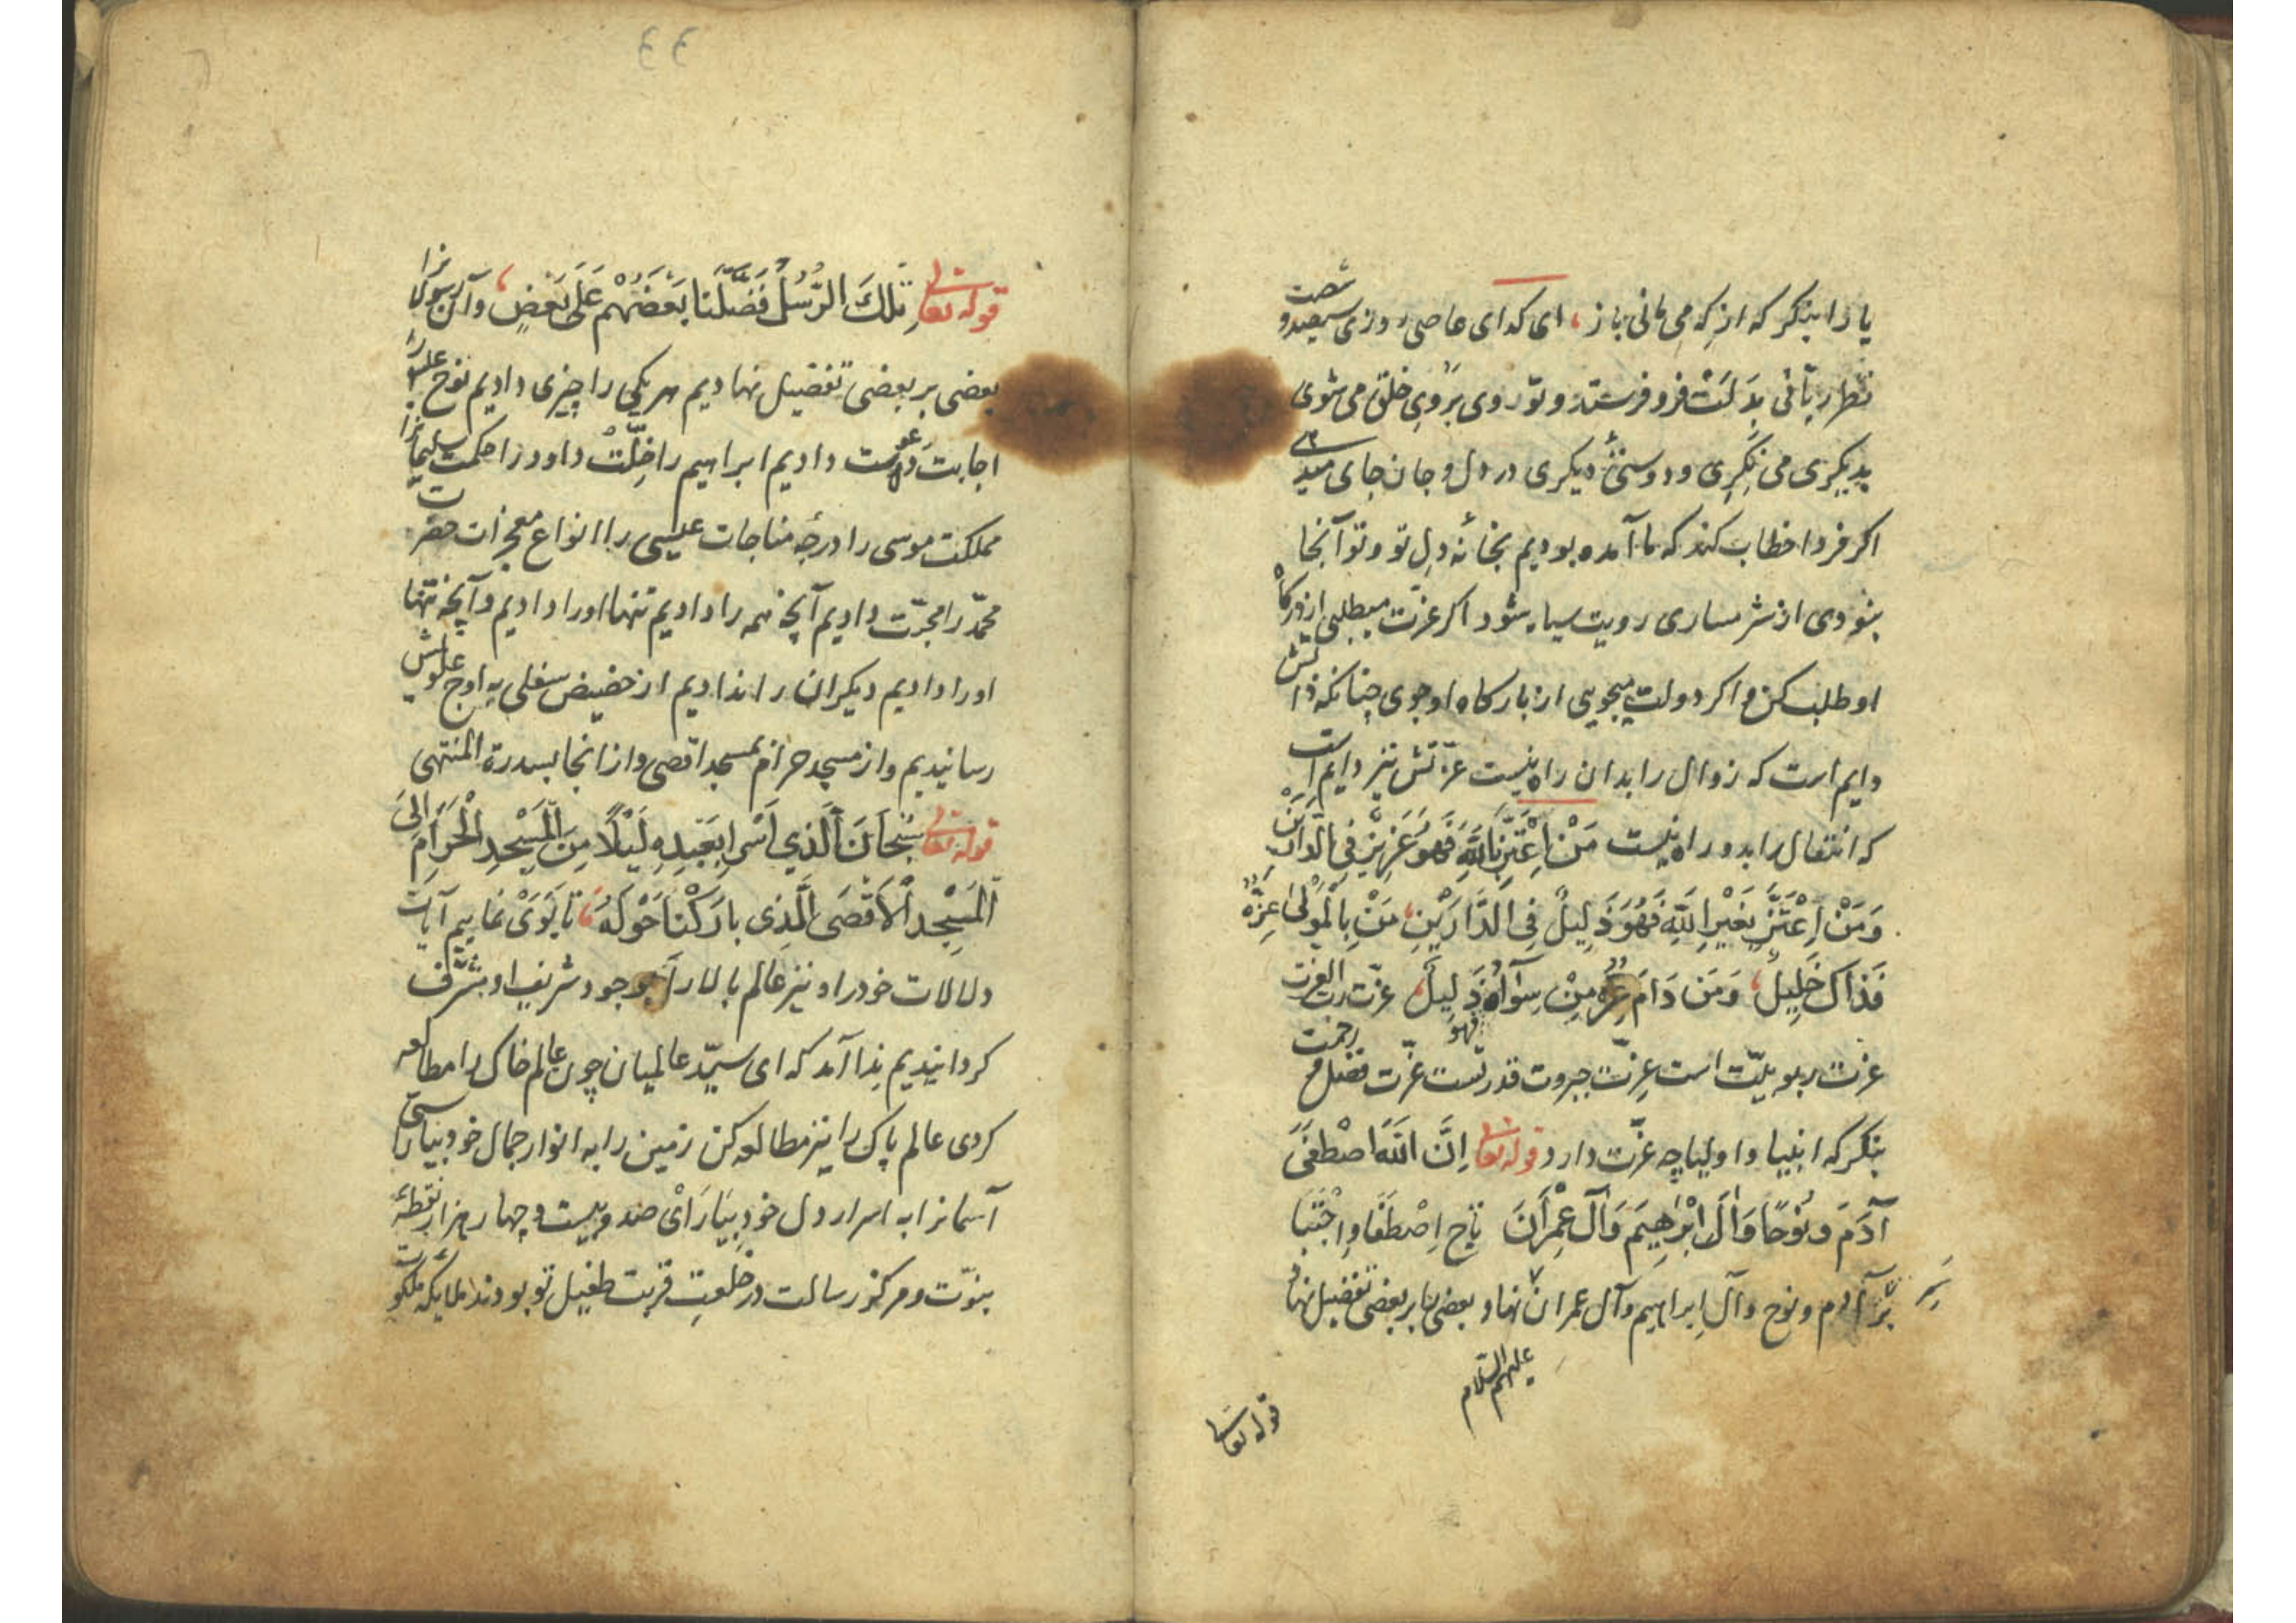 یا را بنکر که از که می مانی باز، ای کدای عاصی روزی سیصد و شصت
نظر ربّانی بدلت فرو فرستد و تو روی بروی خلق می شوی
بدیکری می نکری و دوستیٔ دیکری در دل و جان جای میدهی
اکر فردا خطاب کند که ما آمده بودیم بخانهٔ دل تو و تو آنجا
نبودی از شرمساری رویت سیاه شود اکر عزّت میطلبی از درکاه
او طلب کن و اکر دولت میجویی از بارکاه او جوی چنانکه ذاتش
دایم است که زوال را بدان راه نیست عزّتش نیز دایم است
که انتقال را بدو راه نیست مَنْ اِعْتَزَّ بِاللّهِ فَهُوَ عَزِیزٌ فِی الدَّارَیْنِ
وَمَنْ اِعْتَزَّ بِغَیْرِ اللّهِ فَهُوَ ذَلِیلٌ فِی الدَّارَیْنِ، مَنْ بِالْمَوْلی عِزُّهُ
فَذاکَ خَلِیلٌ، وَمَن دَامَ عِزُّهُ مِنْ سِوَاهُ فهو ذَلِیلٌ، عزّت ربّ العزت
عزت ربوبیّت است عزّت جبروت قدرتست عزّت فضل و رحمت
بنکر که انبیا و اولیا چه عزّت دارد قوله تعالی اِنَّ اللّهَ اصْطَفَی
آدَمَ وَنُوحًا وَآلَ اِبْرٰهِیمَ وَآلَ عِمْرَانَ تاج اِصْطَفَا و اِجْتَبَا
بر سر آدم و نوح و آل ابراهیم و آل عمران نهاد بعضی را بر بعضی تفضیل نهاد
علیهم السّلام
قوله تعالی
33
قوله تعالی تِلْكَ الرُّسُلُ فَضَّلْنَا بَعْضَهُمْ عَلَی بَعْضٍ، و آن رسولانرا
بعضی بر بعضی تفضیل نهادیم هر یکی را چیزی دادیم نوح علیه را
اجابت دعوت دادیم ابراهیم را خِلّت داود را حکمت سلیمانرا
مملکت موسی را درجهٔ مناجات عیسی را انواع معجزات حضرت
محمّد را محبّت دادیم آنچه همه را دادیم تنها او را دادیم و آنچه تنها
او را دادیم دیکران را ندادیم از حضیض سفلی به اوج علویش
رسانیدیم و از مسجد حرام بمسجد اقصی و از انجا بسدرة المنتهی
قوله تعالی سُبْحَانَ الَّذِی اَسْرَی بِعَبْدِهِ لَیْلًا مِنَ الْمَسْجِدِ الْحَرَامِ اِلَی
الْمَسْجِدِ الْاَقْصَی الَّذِی بَارَکْنَا حَوْلَهُ، تا بَوَیْ نماییم آیات
دلالات خود را و نیز عالم بالا را بوجود شریف او مشرّف
کردانیدیم ندا آمد که ای سیّد عالمیان چون عالم خاک را مطالعه
کردی عالم پاک را نیز مطالعه کن زمین را به انوار جمال خود بیاراستی
آسمانرا به اسرار دل خود بیارای صد و بیست و چهار هزار نقطهٔ
نبوّت و مرکز رسالت در خلعت قربت طفیل تو بودند ملایکهٔ ملکوت